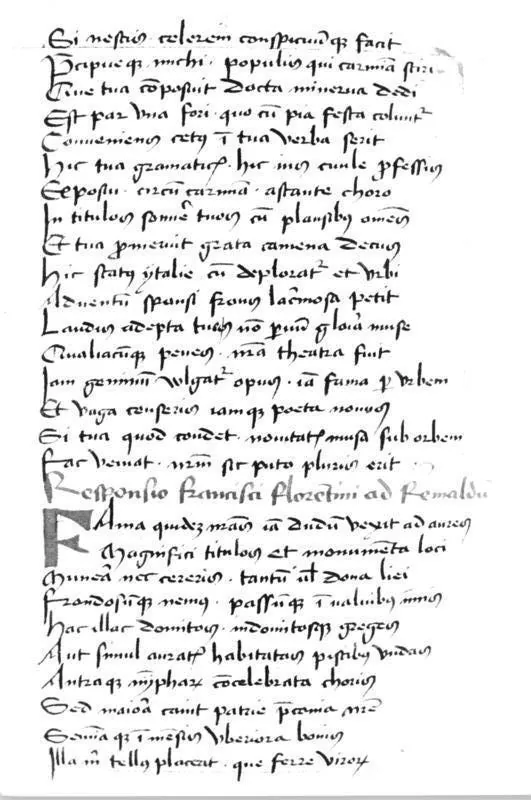 Si nescius celerem conspicuumq facit
Pcipueq michi populus qui carmīa
Que tua cōposuit docta minerva dedi
Est par una fori quo cū pia festa coluntr
Conveniens cetus ī tua verba
Hic tua gramatice hic ius civile pfessus
Exposui circū carmīa astante choro
In titulos tuos cū plausibus omēs
Et tua pmeruit grata camena decus
Hic status ytalie cū deploratr et urbi
Adventū sponsi lacrimosa petit
Laudis adepta tuis nō pvū gloīa muse
Qualiacūq penes nrā theatra fuit
Iam geminū vulgatr opus iā fama p urbem
Et vaga iamq poeta novus
Si tua quod condet novitatis musa sub orbem
Fac veniat nrm sic puto pluris erit
Responsio Francisci Florentini ad Remaldū
Fama quidez mīas iā dudū vexit ad aures
Magnifici titulos et monumēta loci
Munera nec cereris tantū ul dona liei
Frondosūq nemus passūq ī vallibus imis
Hac illac domitos indomitosq greges
Aut simul auratis habitatas piscibus undas
Antraq nympharꝝ cōcelebrata choris
Sed maiora canit patrie pconia nrē
Semīaq īmēsis uberiora bonis
Illa m tellus placeat que ferre virorꝝ